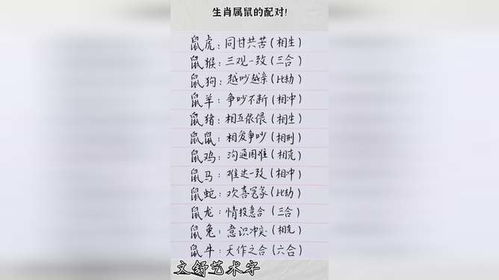 生肖属鼠的配对!
鼠虎:同甘共苦(相生)
鼠猴:三观一致(三合)
鼠狗:越吵越亲(比劫)
鼠羊:争吵不断(相冲)
鼠猪:相互依偎(相生)
鼠鼠:相爱争吵(相刑)
鼠鸡:沟通困难(相克)
鼠马:难达一致(相冲)
鼠蛇:欢喜冤家(比劫)
鼠龙:情投意合(三合)
鼠兔:意识冲突(相克)
鼠牛:天作之合(六合)
文新艺术字